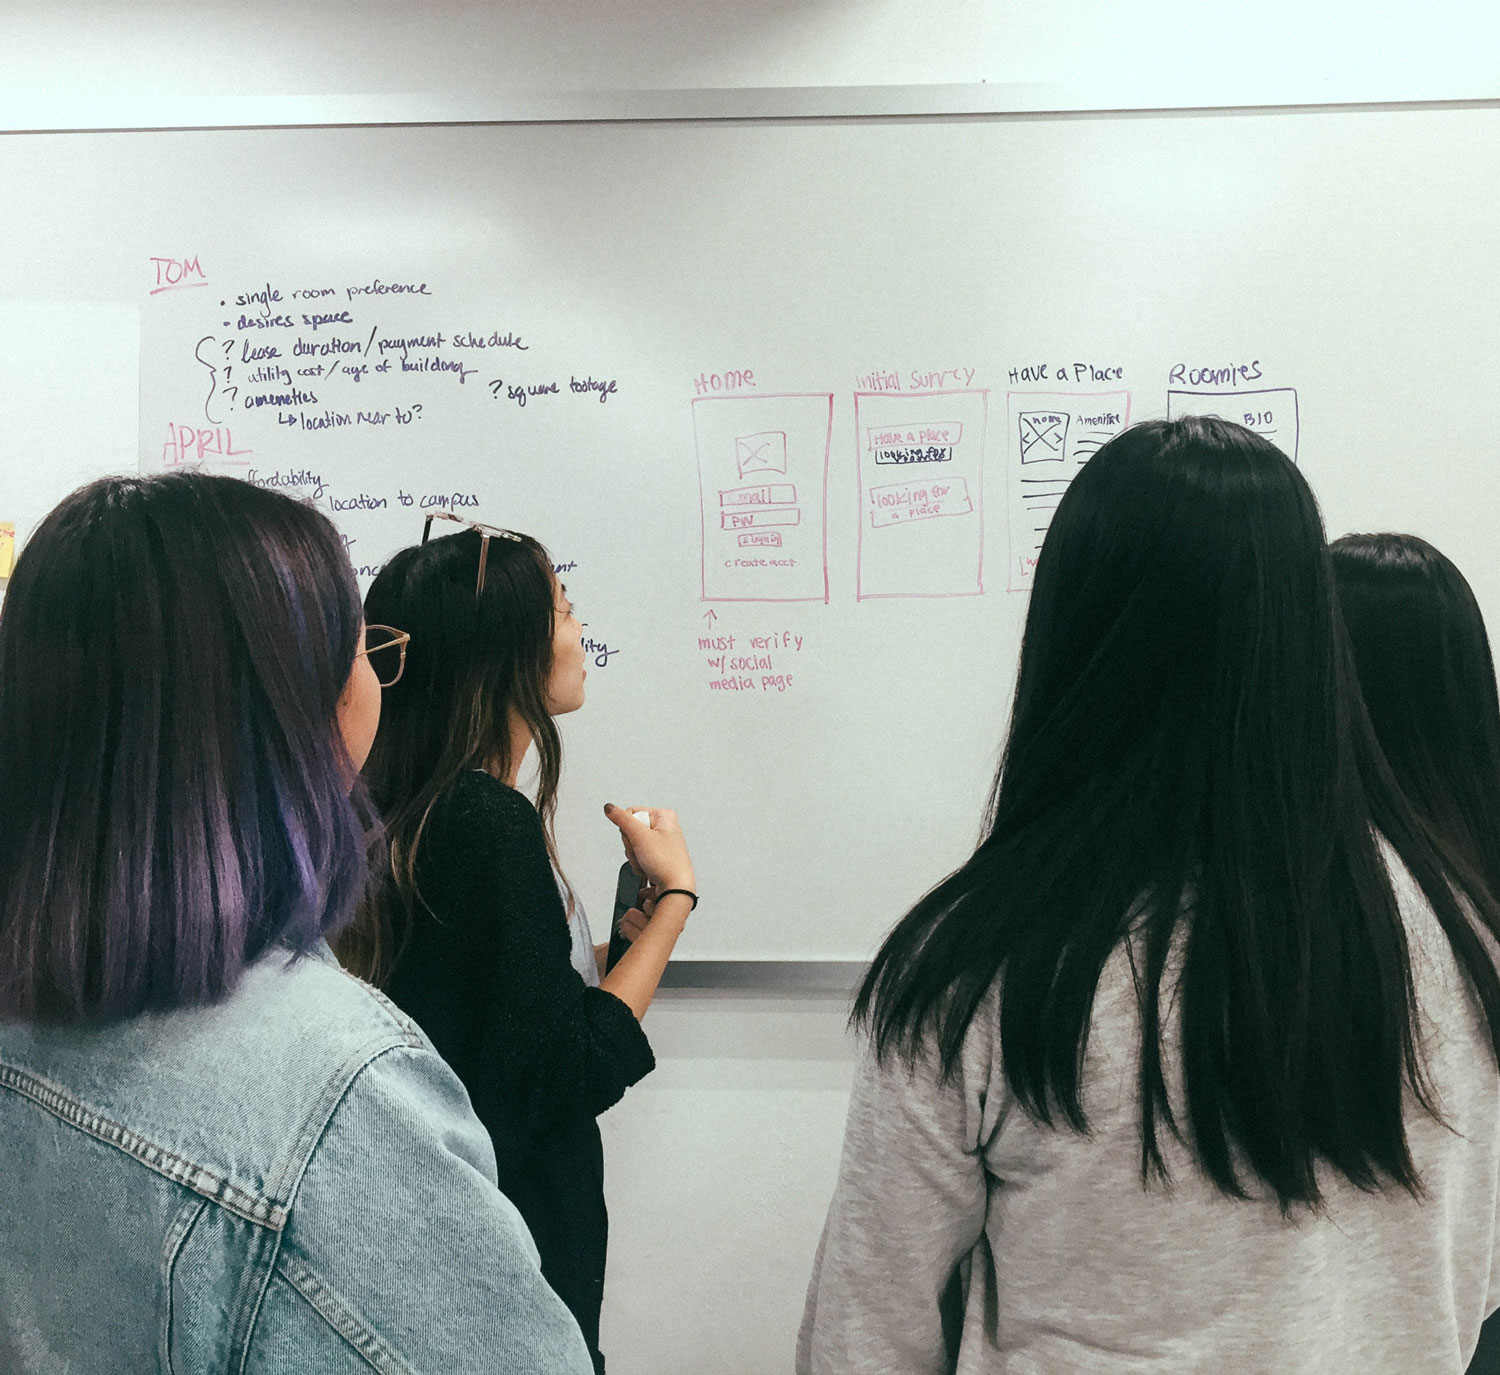 TOM
• single room preference
• desires space
? lease duration/payment schedule
? utility cost/age of building
? ameneties
? square footage
↳ location near to?
APRIL
ffordability
location to campus
Home
Email
PW
create acct
↑
must verify
w/ social
media page
Initial Survey
Have a place
looking for
looking for
a place
Have a Place
home
Amenities
Roomies
BIO